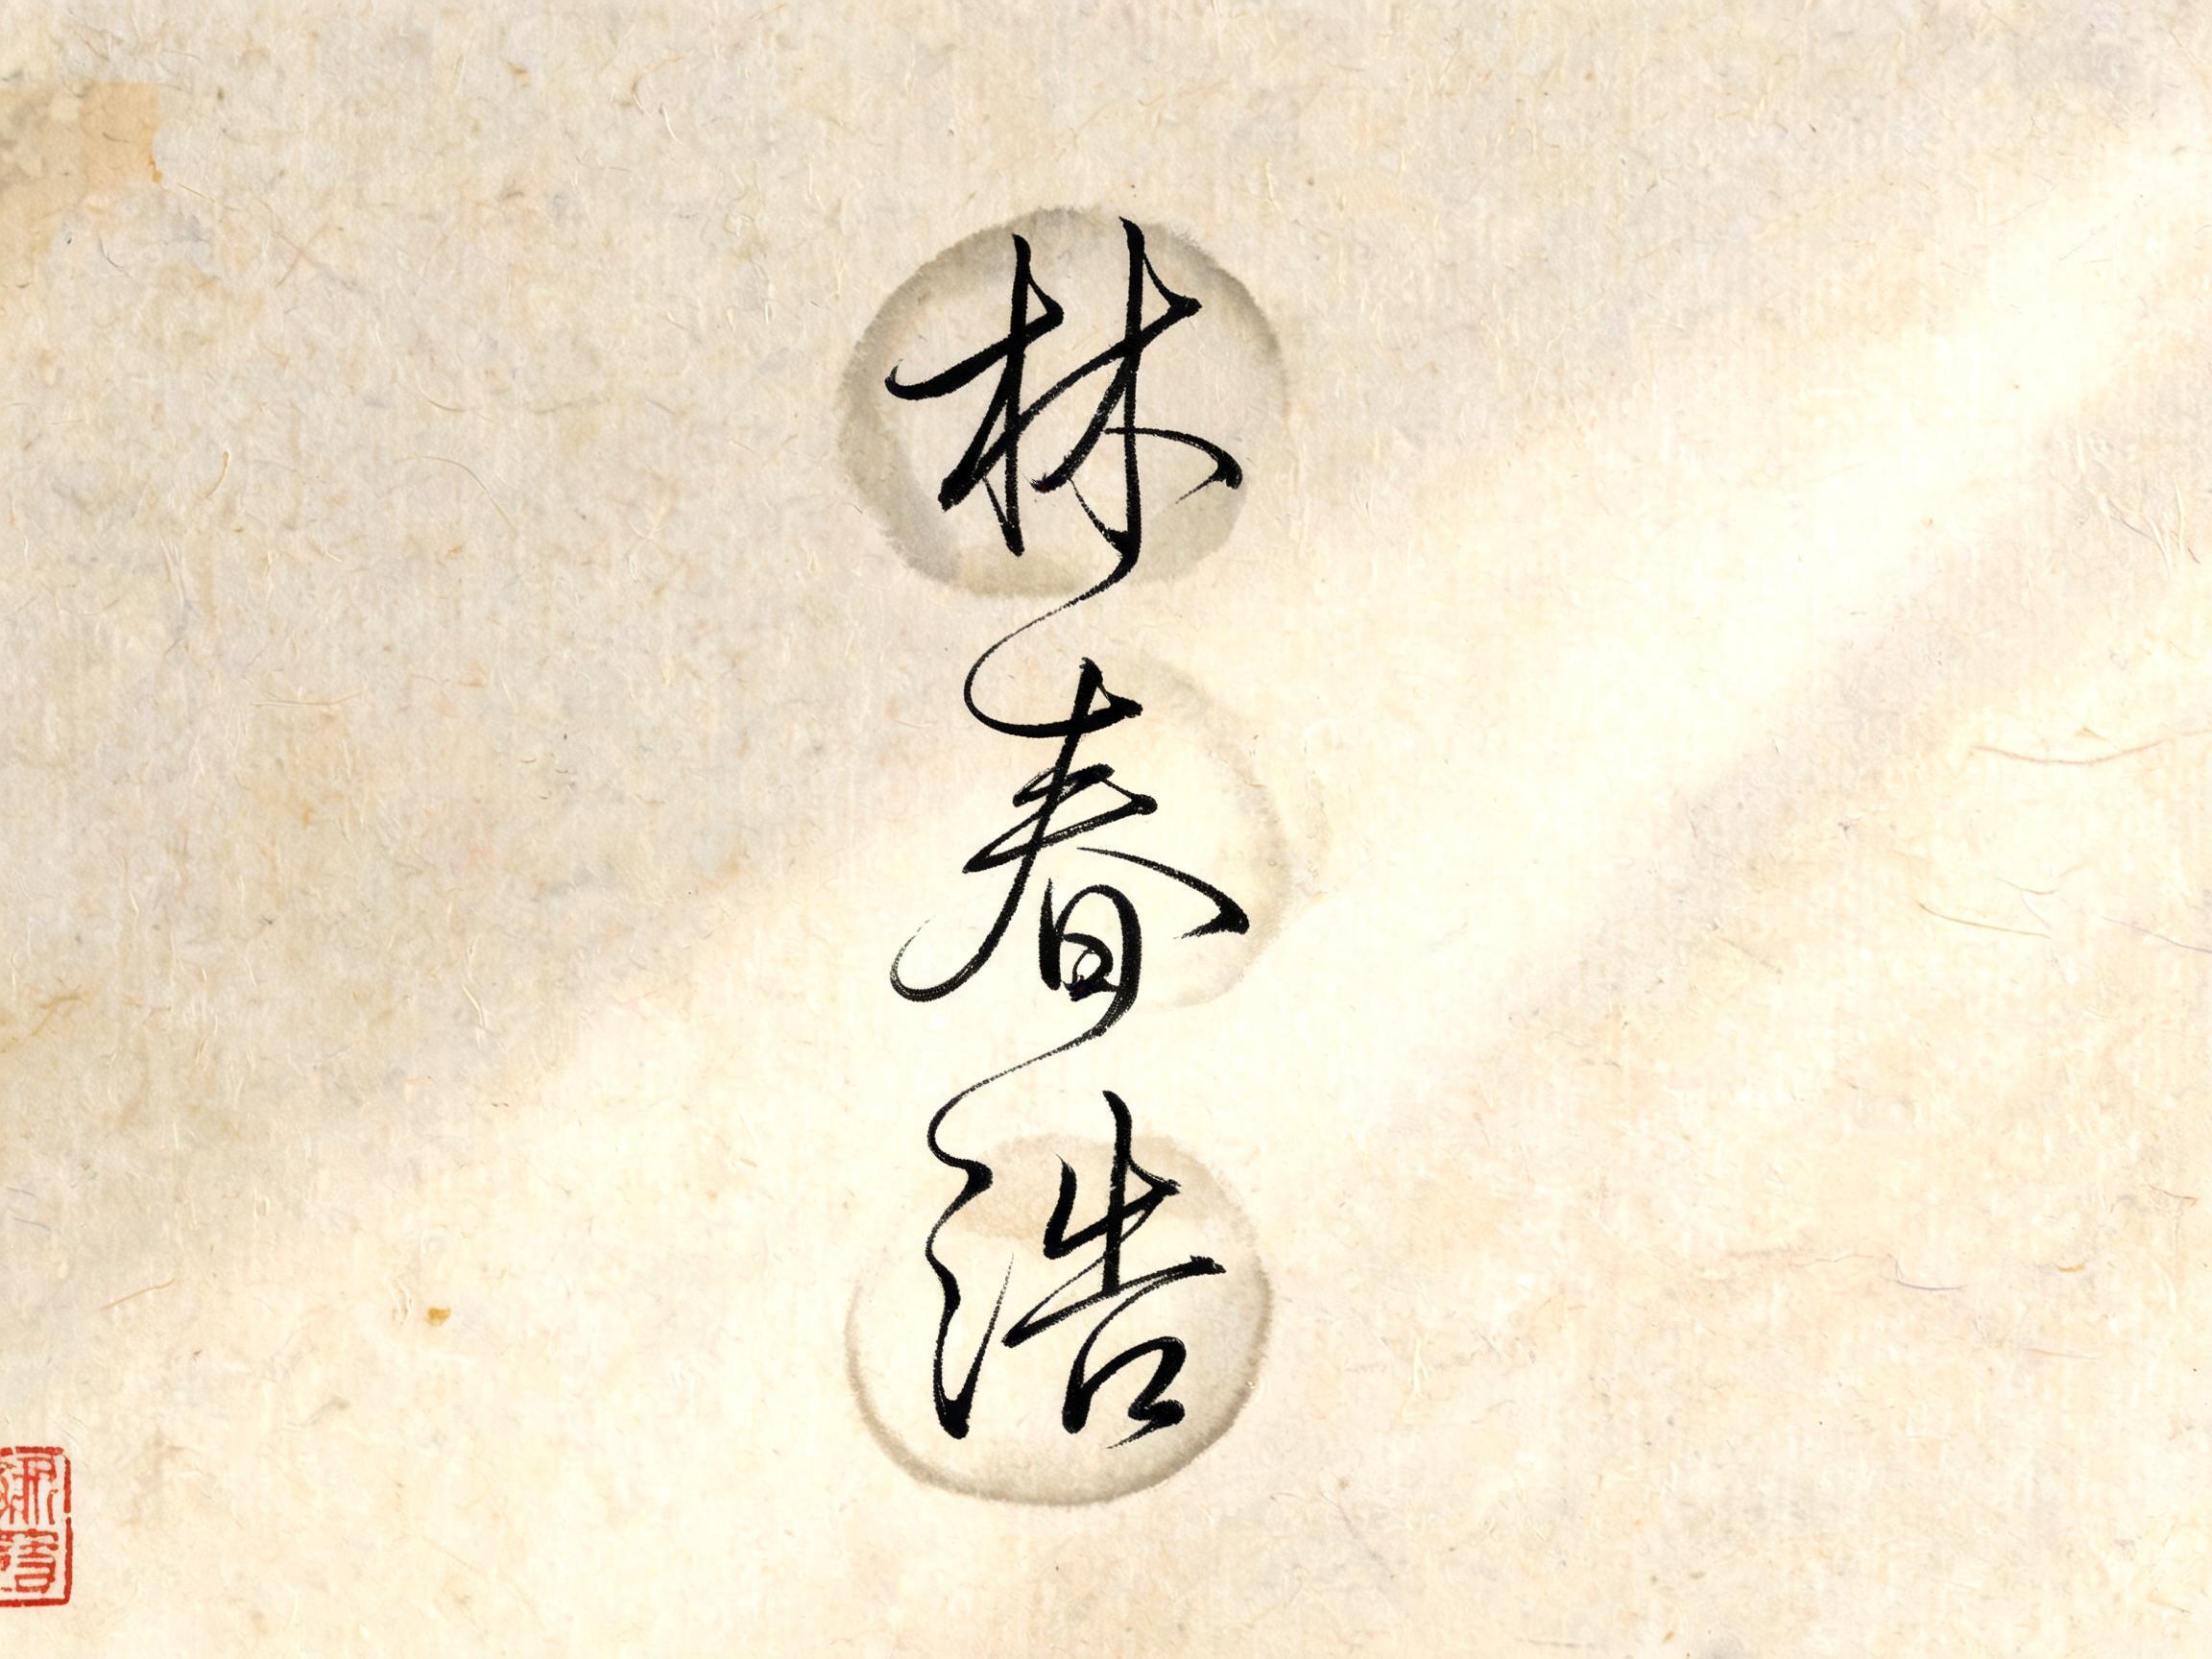 林春浩